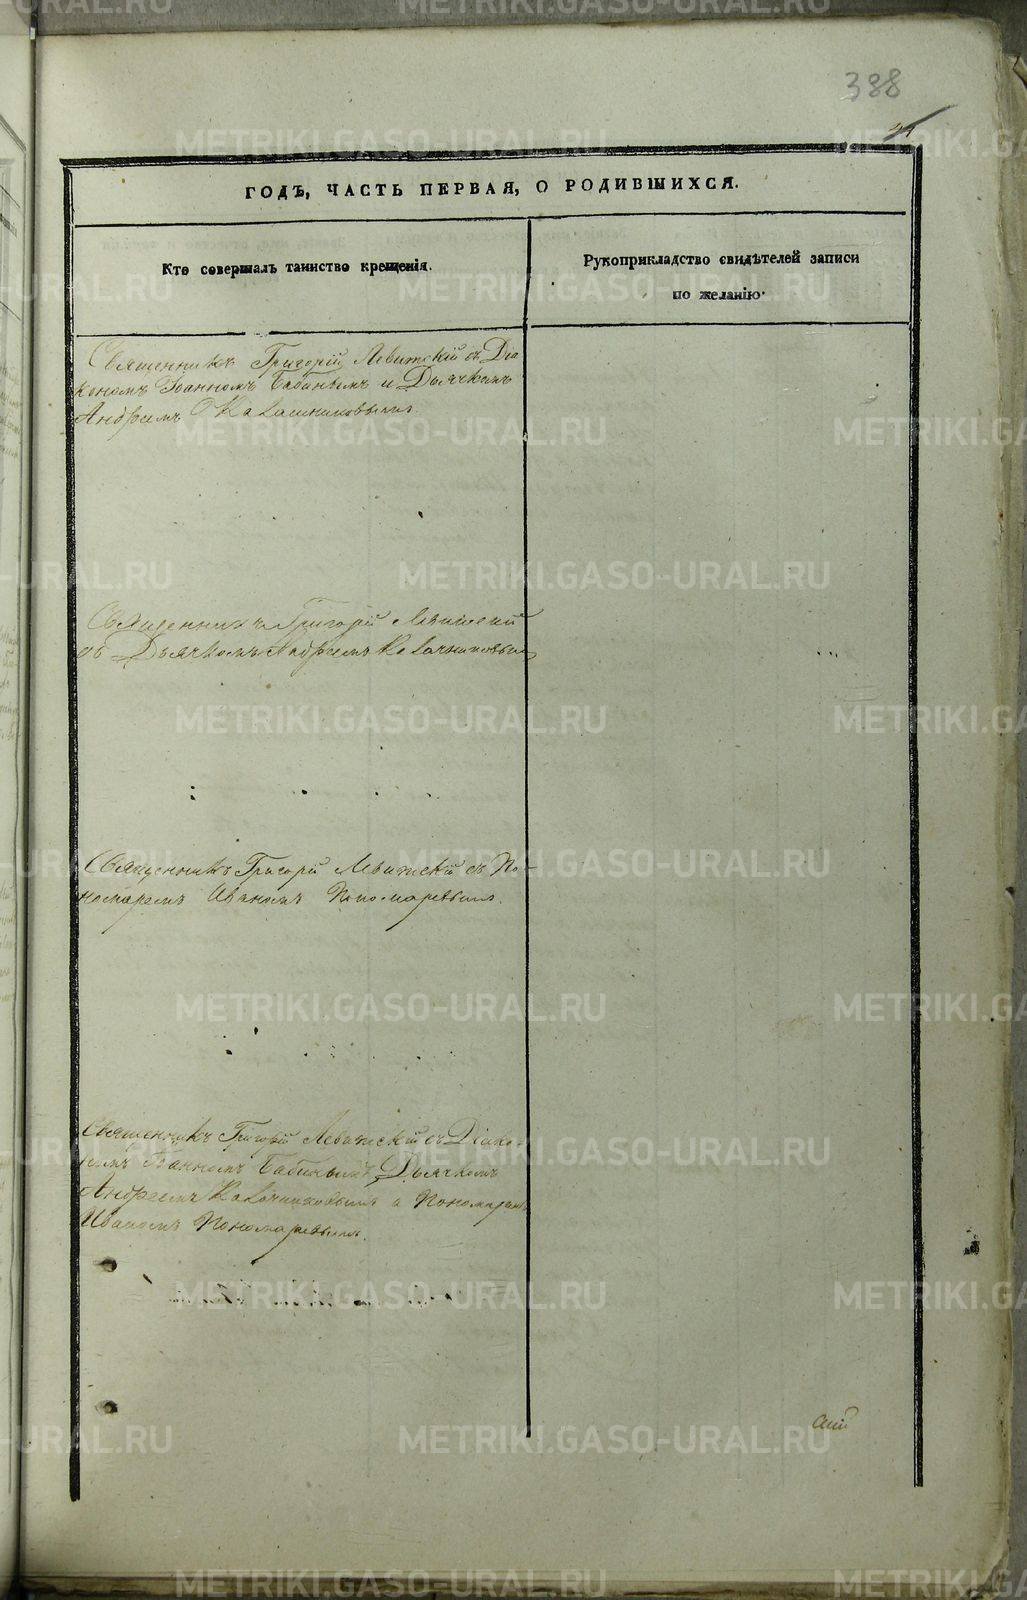 388
ГОДЪ, ЧАСТЬ ПЕРВАЯ, О РОДИВШИХСЯ.
Кто совершалъ таинство крещенія.
Рукоприкладство свидѣтелей записи
по желанію.
Священникъ Григорій Левитскій съ Діа
кономъ Іоанномъ Бабинымъ и Дьячкомъ
Андреемъ Калашниковымъ.
Священникъ Григорій Левитскій
съ Дьячкомъ Андреемъ Калачниковым
Священникъ Григорій Левитскій съ По-
номаремъ Иваномъ Пономаревымъ.
Священникъ Григорій Левитскій съ Діако-
номъ Іоанномъ Бабинымъ, Дьячкомъ
Андреемъ Калачниковымъ и Пономарем
Иваномъ Пономаревымъ.
METRIKI.GASO-URAL.RU